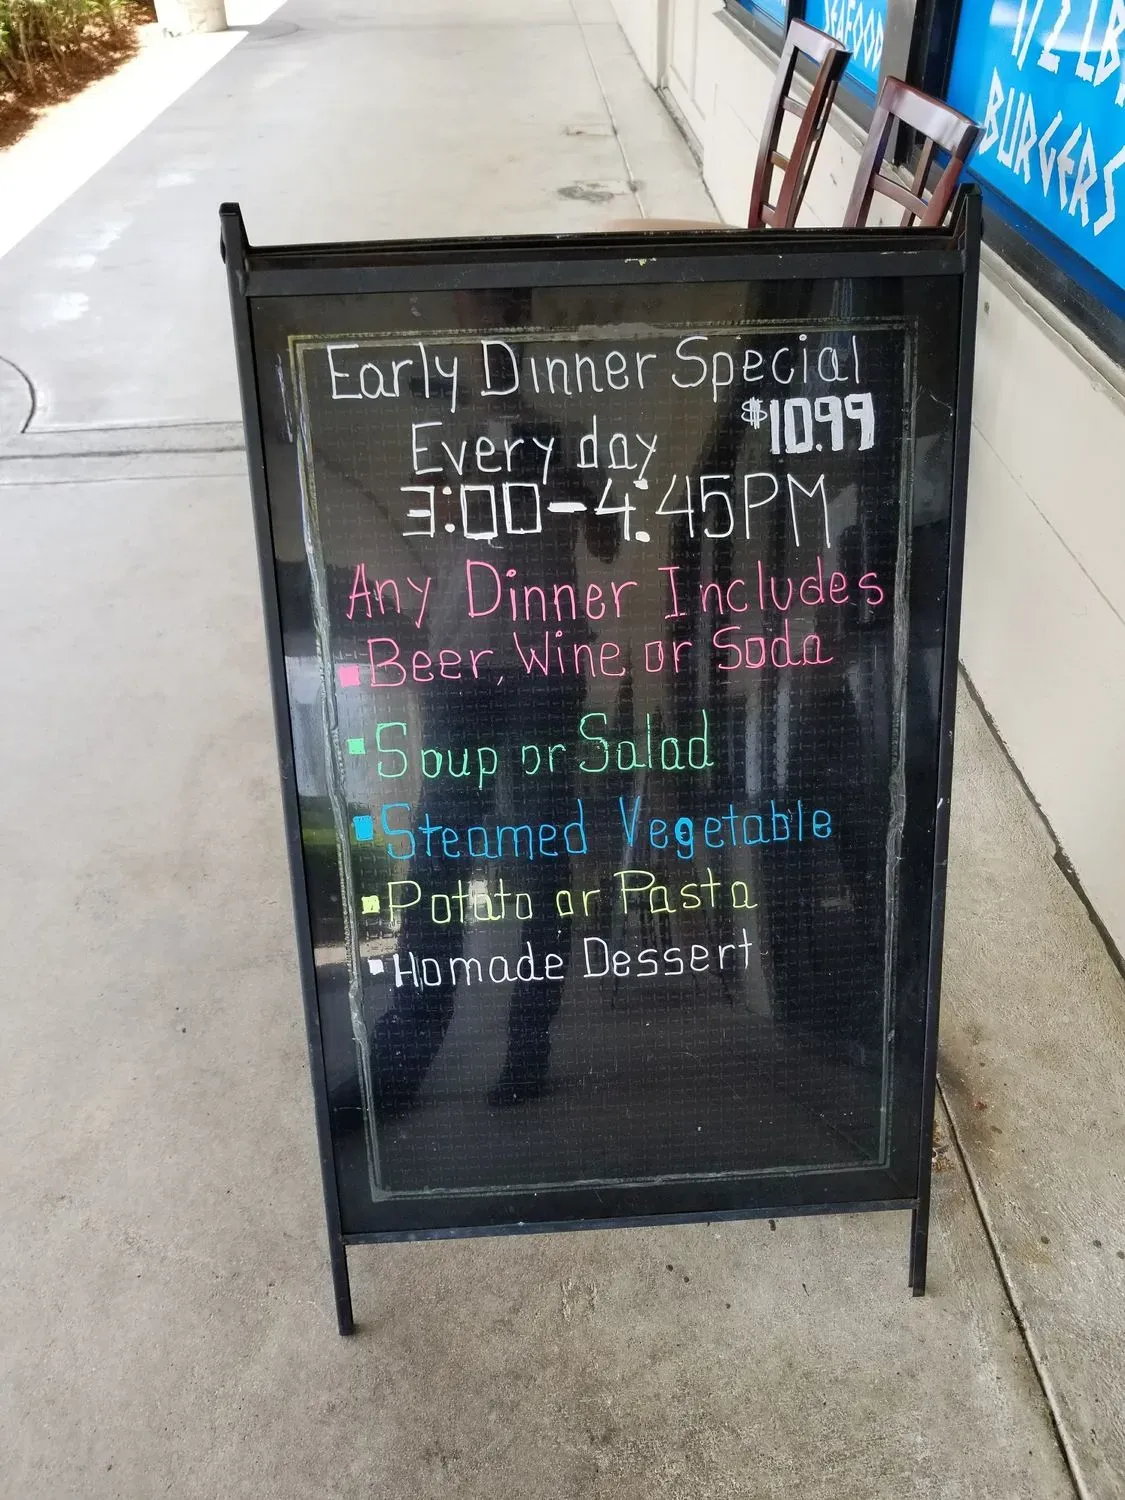 SEAFOOD
1/2 LB
BURGERS
Early Dinner Special
$10.99
Every day
3:00-4:45PM
Any Dinner Includes
Beer, Wine or Soda
Soup or Salad
Steamed Vegetable
Potato or Pasta
Homade Dessert